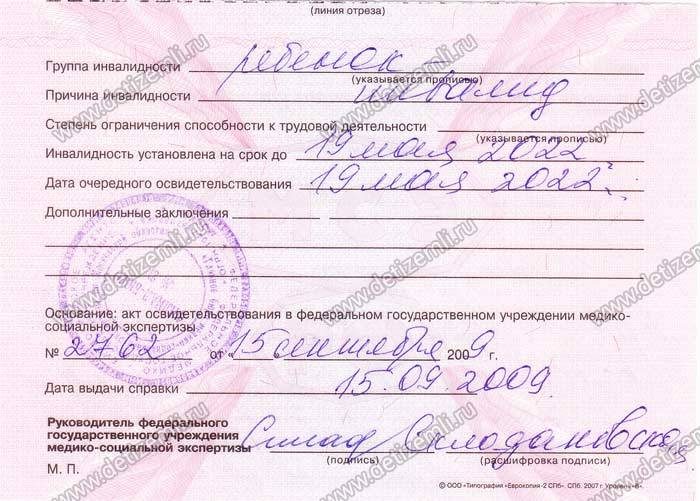 (линия отреза)
Группа инвалидности ребенок -
(указывается прописью)
Причина инвалидности инвалид
Степень ограничения способности к трудовой деятельности
(указывается прописью)
Инвалидность установлена на срок до 19 мая 2022
Дата очередного освидетельствования 19 мая 2022г.
Дополнительные заключения
Основание: акт освидетельствования в федеральном государственном учреждении медико-
социальной экспертизы
№ 2762 от "15 сентября 2009 г.
Дата выдачи справки 15.09.2009
Руководитель федерального
государственного учреждения
медико-социальной экспертизы
(подпись) (расшифровка подписи)
М. П.
© ООО «Типография «Еврокопия-2 СПб». СПб. 2007 г. Уровень «В»
www.detizemli.ru